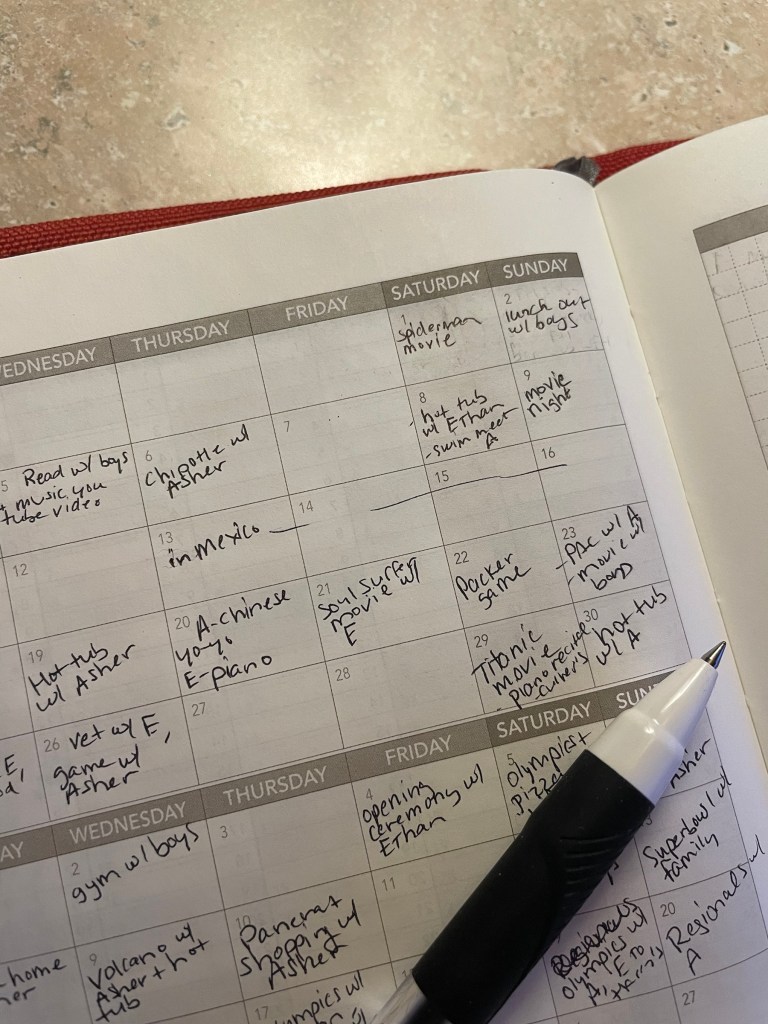 EDNESDAY THURSDAY FRIDAY SATURDAY SUNDAY
1
spiderman
movie
2
lunch out
w/ boys
5 Read w/ boys
+ music, you
tube video
6
Chipotle w/
Asher
7
8
- hot tub
w/ Ethan
- swim meet
A
9
movie
night
12
13
in Mexico
14
15
16
19
Hot tub
w/ Asher
20 A-chinese
yo-yo
E-piano
21
Soul Surfer
movie w/
E
22
Packer
game
23
- w/ A
- movie w/
boys
26 vet w/ E,
game w/
Asher
27
28
29
Titanic
movie
- piano recital
- Culver's
30
hot tub
w/ A
E,
AY WEDNESDAY THURSDAY FRIDAY SATURDAY SUN
2
gym w/ boys
3
4
opening
ceremony w/
Ethan
5
Olympics +
Asher
home
9
Volcano w/
Asher + hot
tub
10
Pancreat
shopping w/
Asher
11
Superbowl w/
family
17
Olympics w/
Regionals
Olympics w/
A, E to
20
Regionals w/
A
27